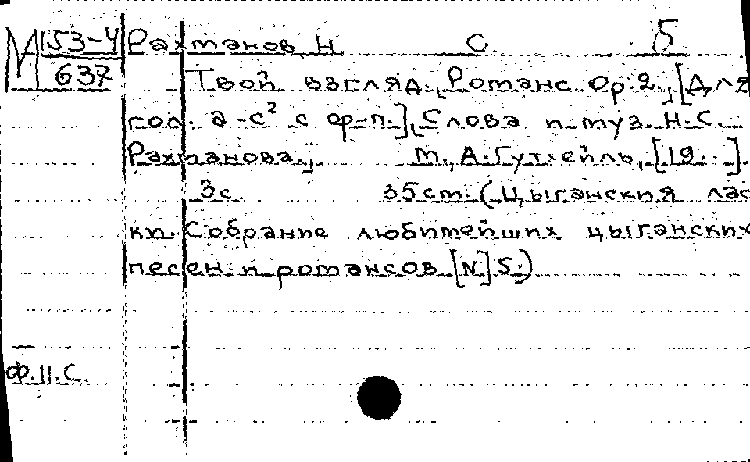 М 153-4 Рахманов, Н. С. 5
637 Твой взгляд. Романс. Ор. 2. [Для
гол. a-c² с ф-п.] Слова и муз. Н. С.
Рахманова. М., А. Гутхейль, [19..].
3с. 35см. (Цыганския лас
ки. Собрание любимейших цыганских
песен и романсов [N] 5.)
Ф.II.С.